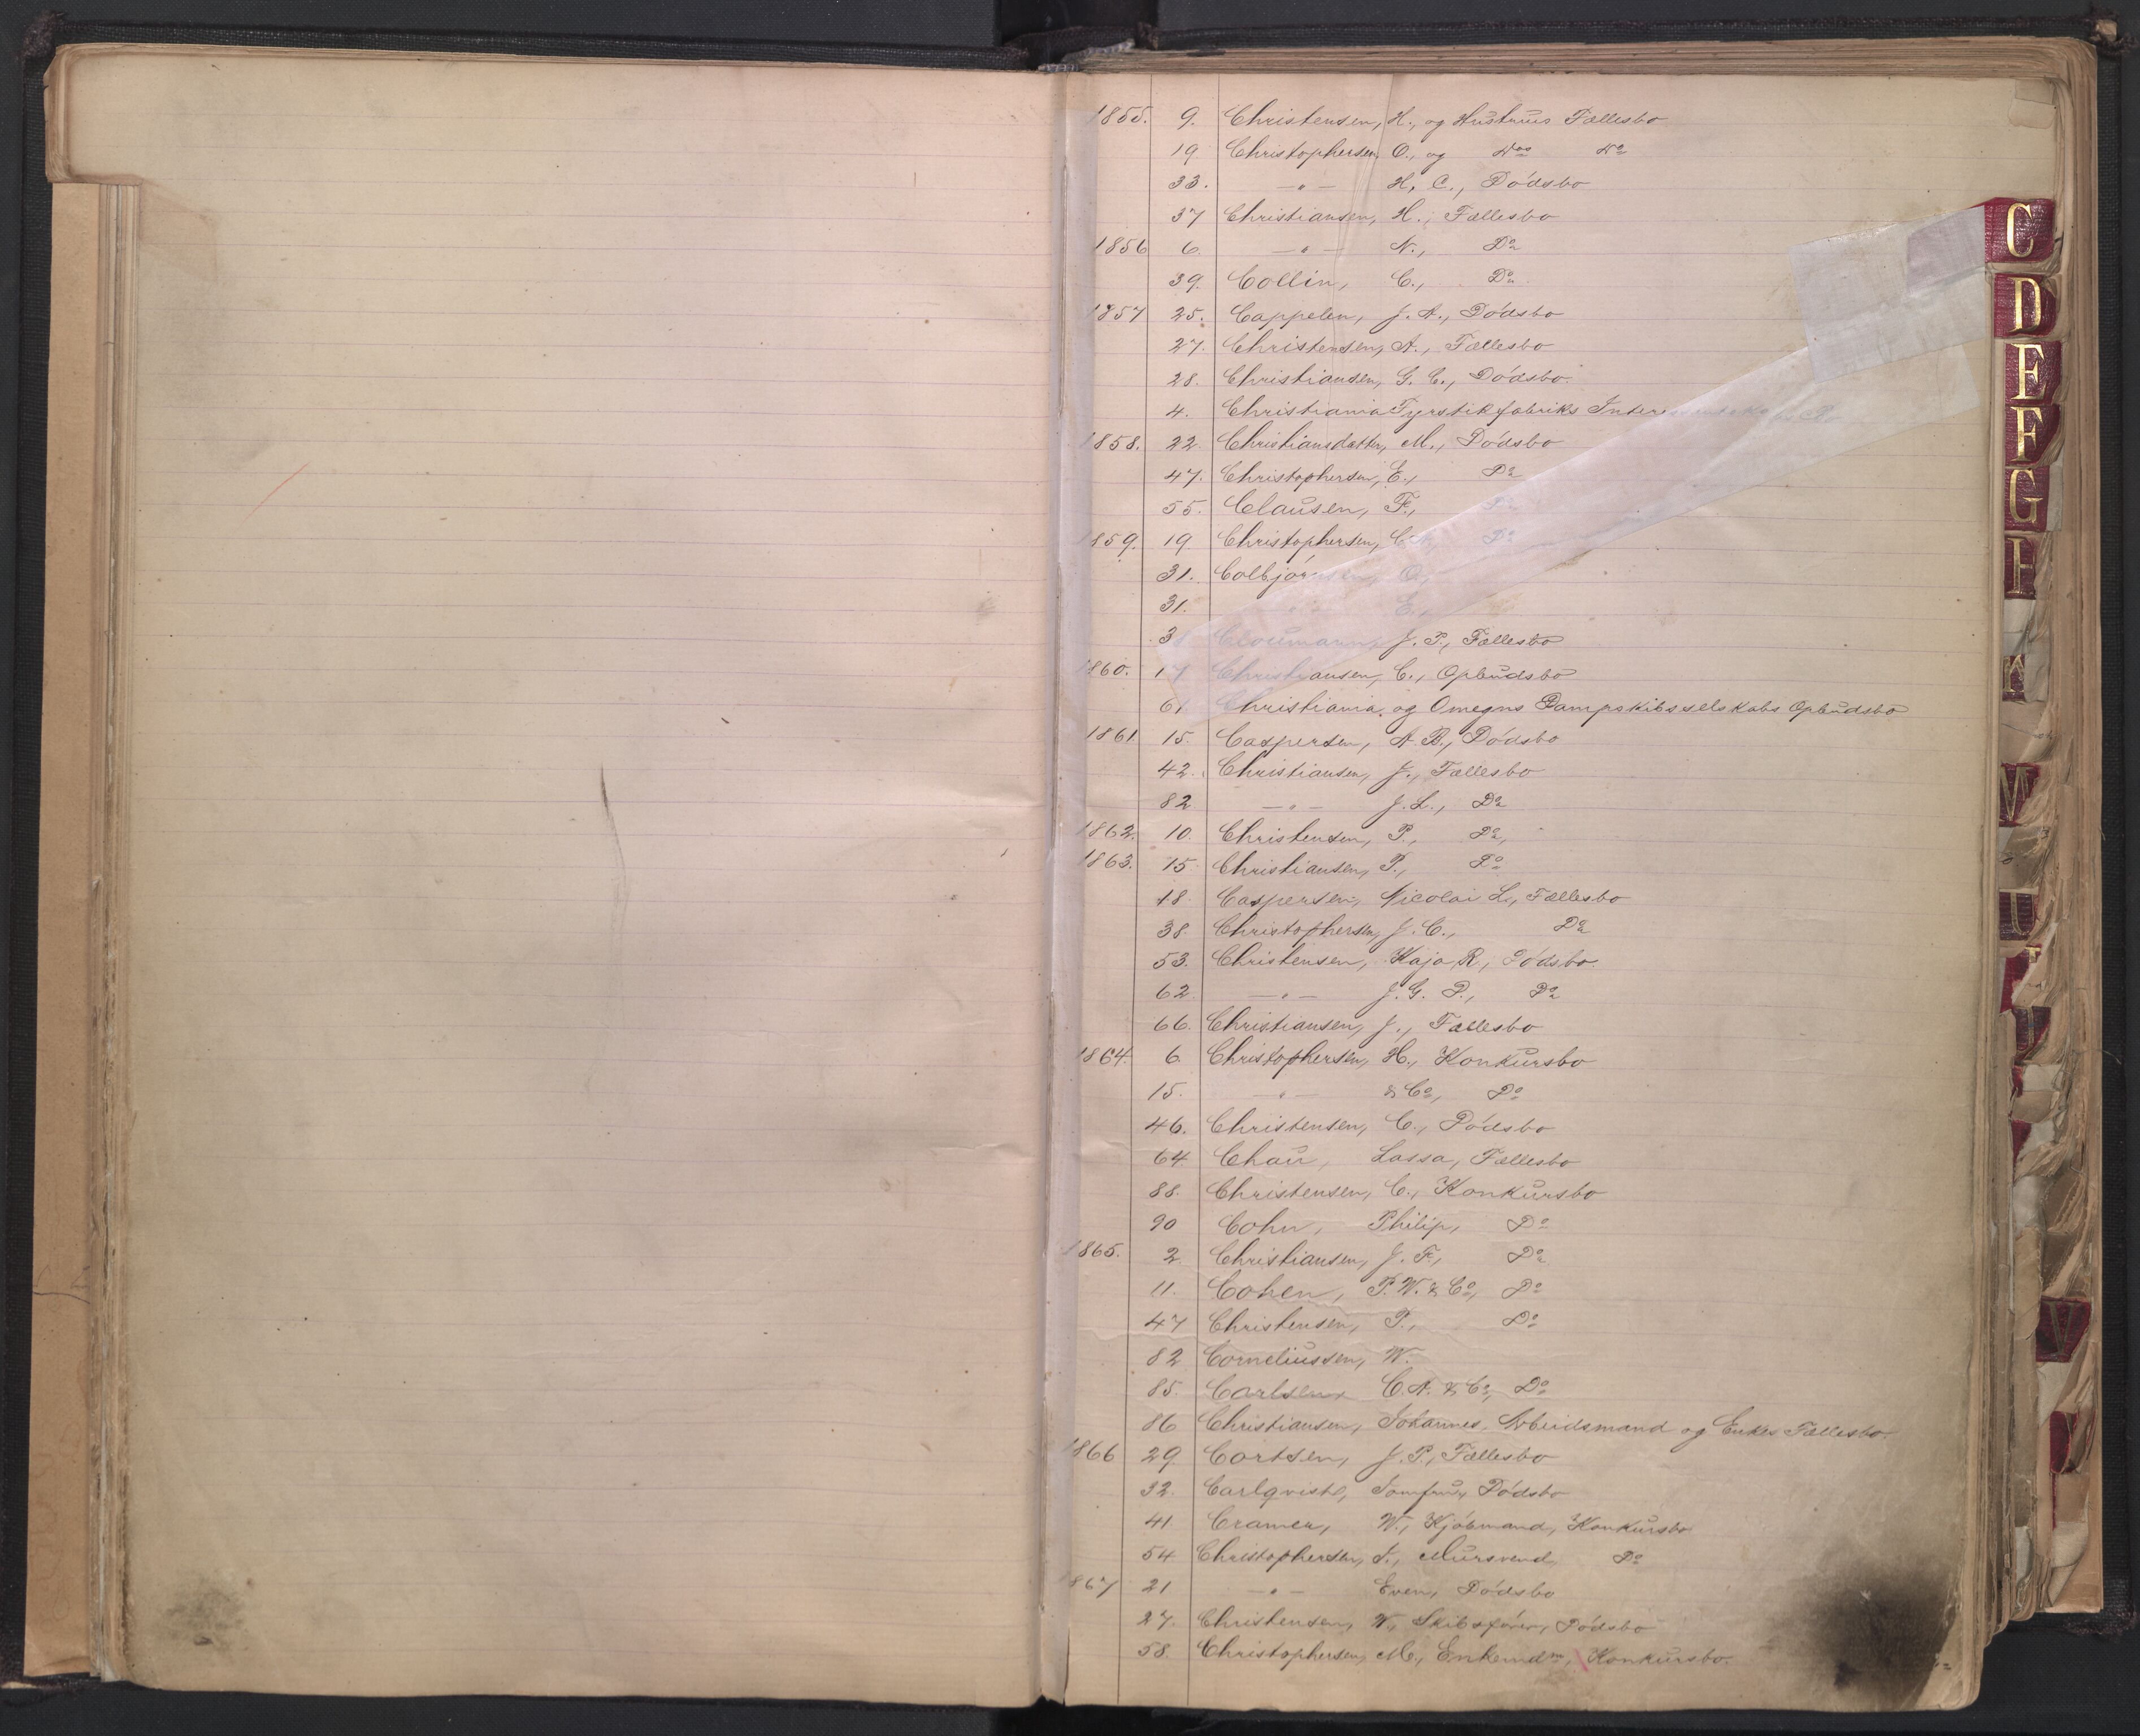 1855. 9. Christensen, H., og Hustrues Fællesbo
19 Christophersen, O., og Dos Do
33. —"— H. C., Dödsbo
37 Christiansen, H., Fællesbo
1856 6. —"— N., Do
39. Collin, C., Do
1857 25. Cappelen, J. A., Dödsbo
27. Christensen, A., Fællesbo
28. Christiansen, G. C., Dödsbo.
4. Christiania Fyrstikfabriks Interessentskabs
1858. 22. Christiansdatter, M., Dödsbo
47. Christophersen, E., Do
55. Clausen, F., Do
1859. 19 Christophersen, Do
31. Colbjörnsen, O.,
31. " E.,
Cloumann, J. P., Fællesbo
1860. 17 Christiansen, C., Opbudsbo
61 Christiania og Omegns Dampskibsselskabs Opbudsbo
1861 15. Caspersen, A. B., Dödsbo
42. Christiansen, J., Fællesbo
82 —"— J. L., Do
1862. 10. Christensen, P., Do
1863. 15 Christiansen, P., Do
18. Caspersen, Nicolai L., Fællesbo
38. Christophersen, J. C., Do
53. Christensen, Kaja R., Dödsbo.
62 —"— J. G. P., Do
66. Christiansen, J., Fællesbo
1864. 6. Christophersen, H., Konkursbo
15. —"— & Co, Do
46. Christensen, C., Dödsbo
64 Chau, Lassa, Fællesbo
88. Christensen, C., Konkursbo
90 Cohn, Philip, Do
1865. 2. Christiansen, J. F., Do
11. Cohen, P. W. & Co, Do
47 Christensen, P., Do
82 Corneliussen, W.
85. Carlsen, C. A. & Co, Do
86 Christiansen, Johannes, Arbeidsmand og Enkes Fællesbo
1866 29 Cortsen, J. P., Fællesbo
32. Carlqvist, Jomfru, Dödsbo
41. Cramer, W., Kjöbmand, Konkursbo
54. Christophersen, Mursvend, Do
1867 21 —"— Even, Dödsbo
27. Christensen, W., Skibsförer, Dödsbo
58. Christophersen, M., Enkemdm, Konkursbo.
C
D
E
F
G
H
K
M
U
V